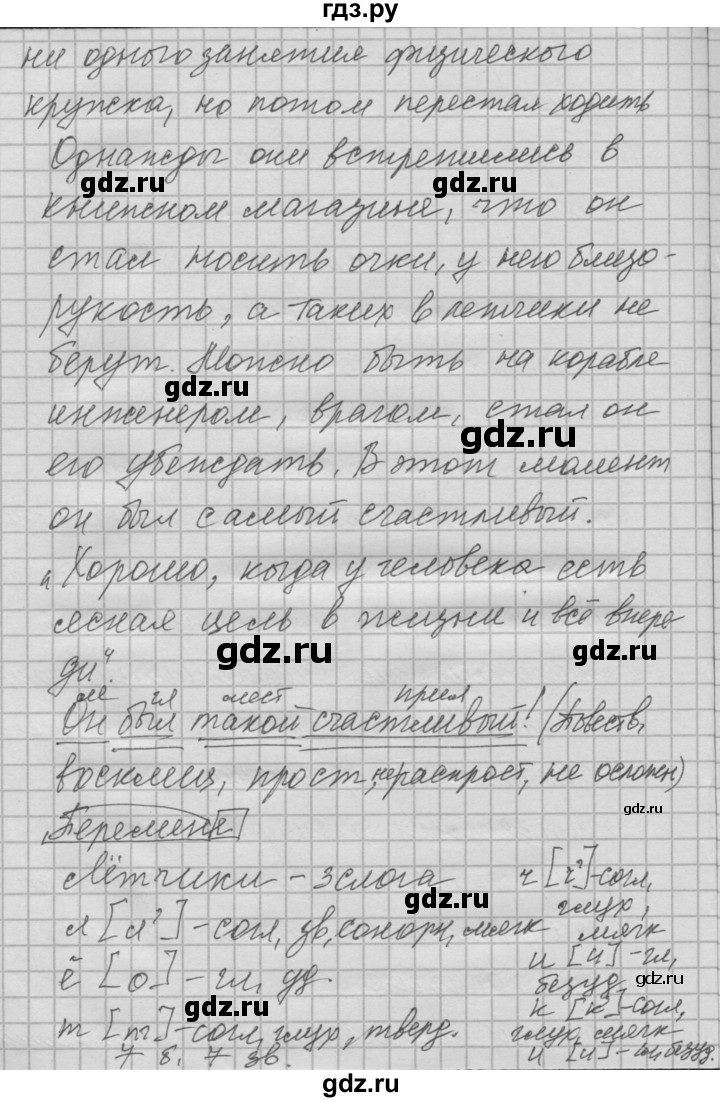 гдз.ру
ни одного занятия физического
кружка, но потом перестал ходить
Однажды они встретились в
gdz.ru gdz.ru
книжном магазине, что он
стал носить очки, у него близо-
рукость, а таких в летчики не
gdz.ru
берут. Можно быть на корабле
инженером, врагом, стал он
gdz.ru
его убеждать. В этот момент
он был самый счастливый.
"Хорошо, когда у человека есть
ясная цель в жизни и всё впере
gdz.ru
ди".
гл мест прил
Он был такой счастливый! (Повеств,
восклиц, прост, нераспрост, не осложн)
gdz.ru
Перемена
Лётчики – 3 слога ч [ч'] - согл,
gdz.ru глух,
л [л'] - согл, зв, сонорн, мягк мягк
ё [о] - гл, уд. и [и] - гл,
безуд,
gdz.ru
т [т] - согл, глух, тверд. к [к'] - согл,
глух, мягк
7 б, 7 зв. и [и] - гл, безуд.
gdz.ru
gdz.ru